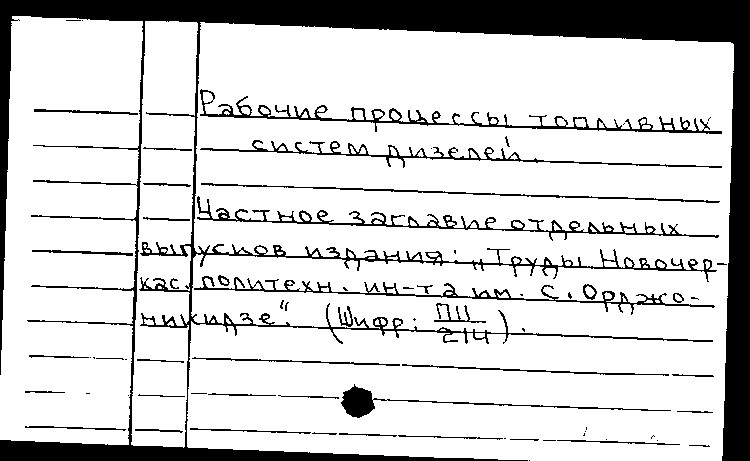 Рабочие процессы топливных
систем дизелей.
Частное заглавие отдельных
выпусков издания: „Труды Новочер-
кас. политехн. ин-та им. С. Орджо-
никидзе“. (Шифр: П11
214).